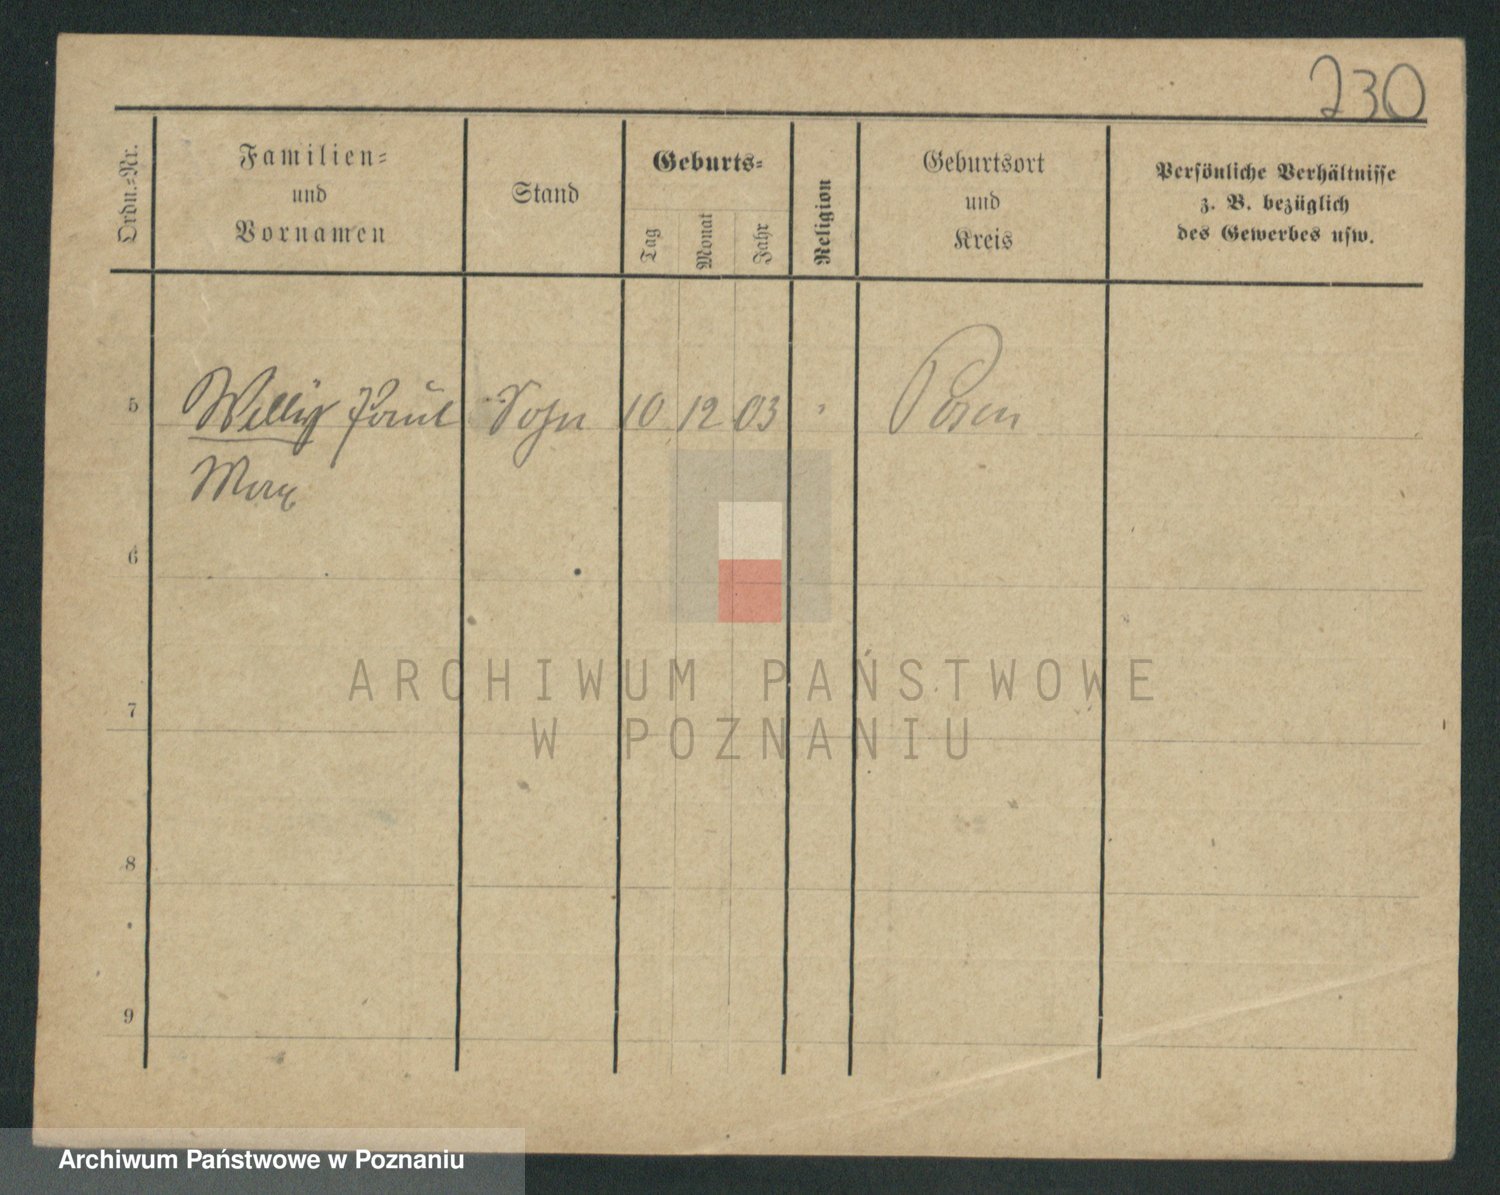 230
Ordn.-Nr.
Familien-
und
Vornamen
Stand
Geburts-
Tag
Monat
Jahr
Religion
Geburtsort
und
Kreis
Persönliche Verhältnisse
z. B. bezüglich
des Gewerbes usw.
5 Willy Paul Sohn 10 12 03 " Posen
Max
6
7
8
9
ARCHIWUM PAŃSTWOWE
W POZNANIU
Archiwum Państwowe w Poznaniu